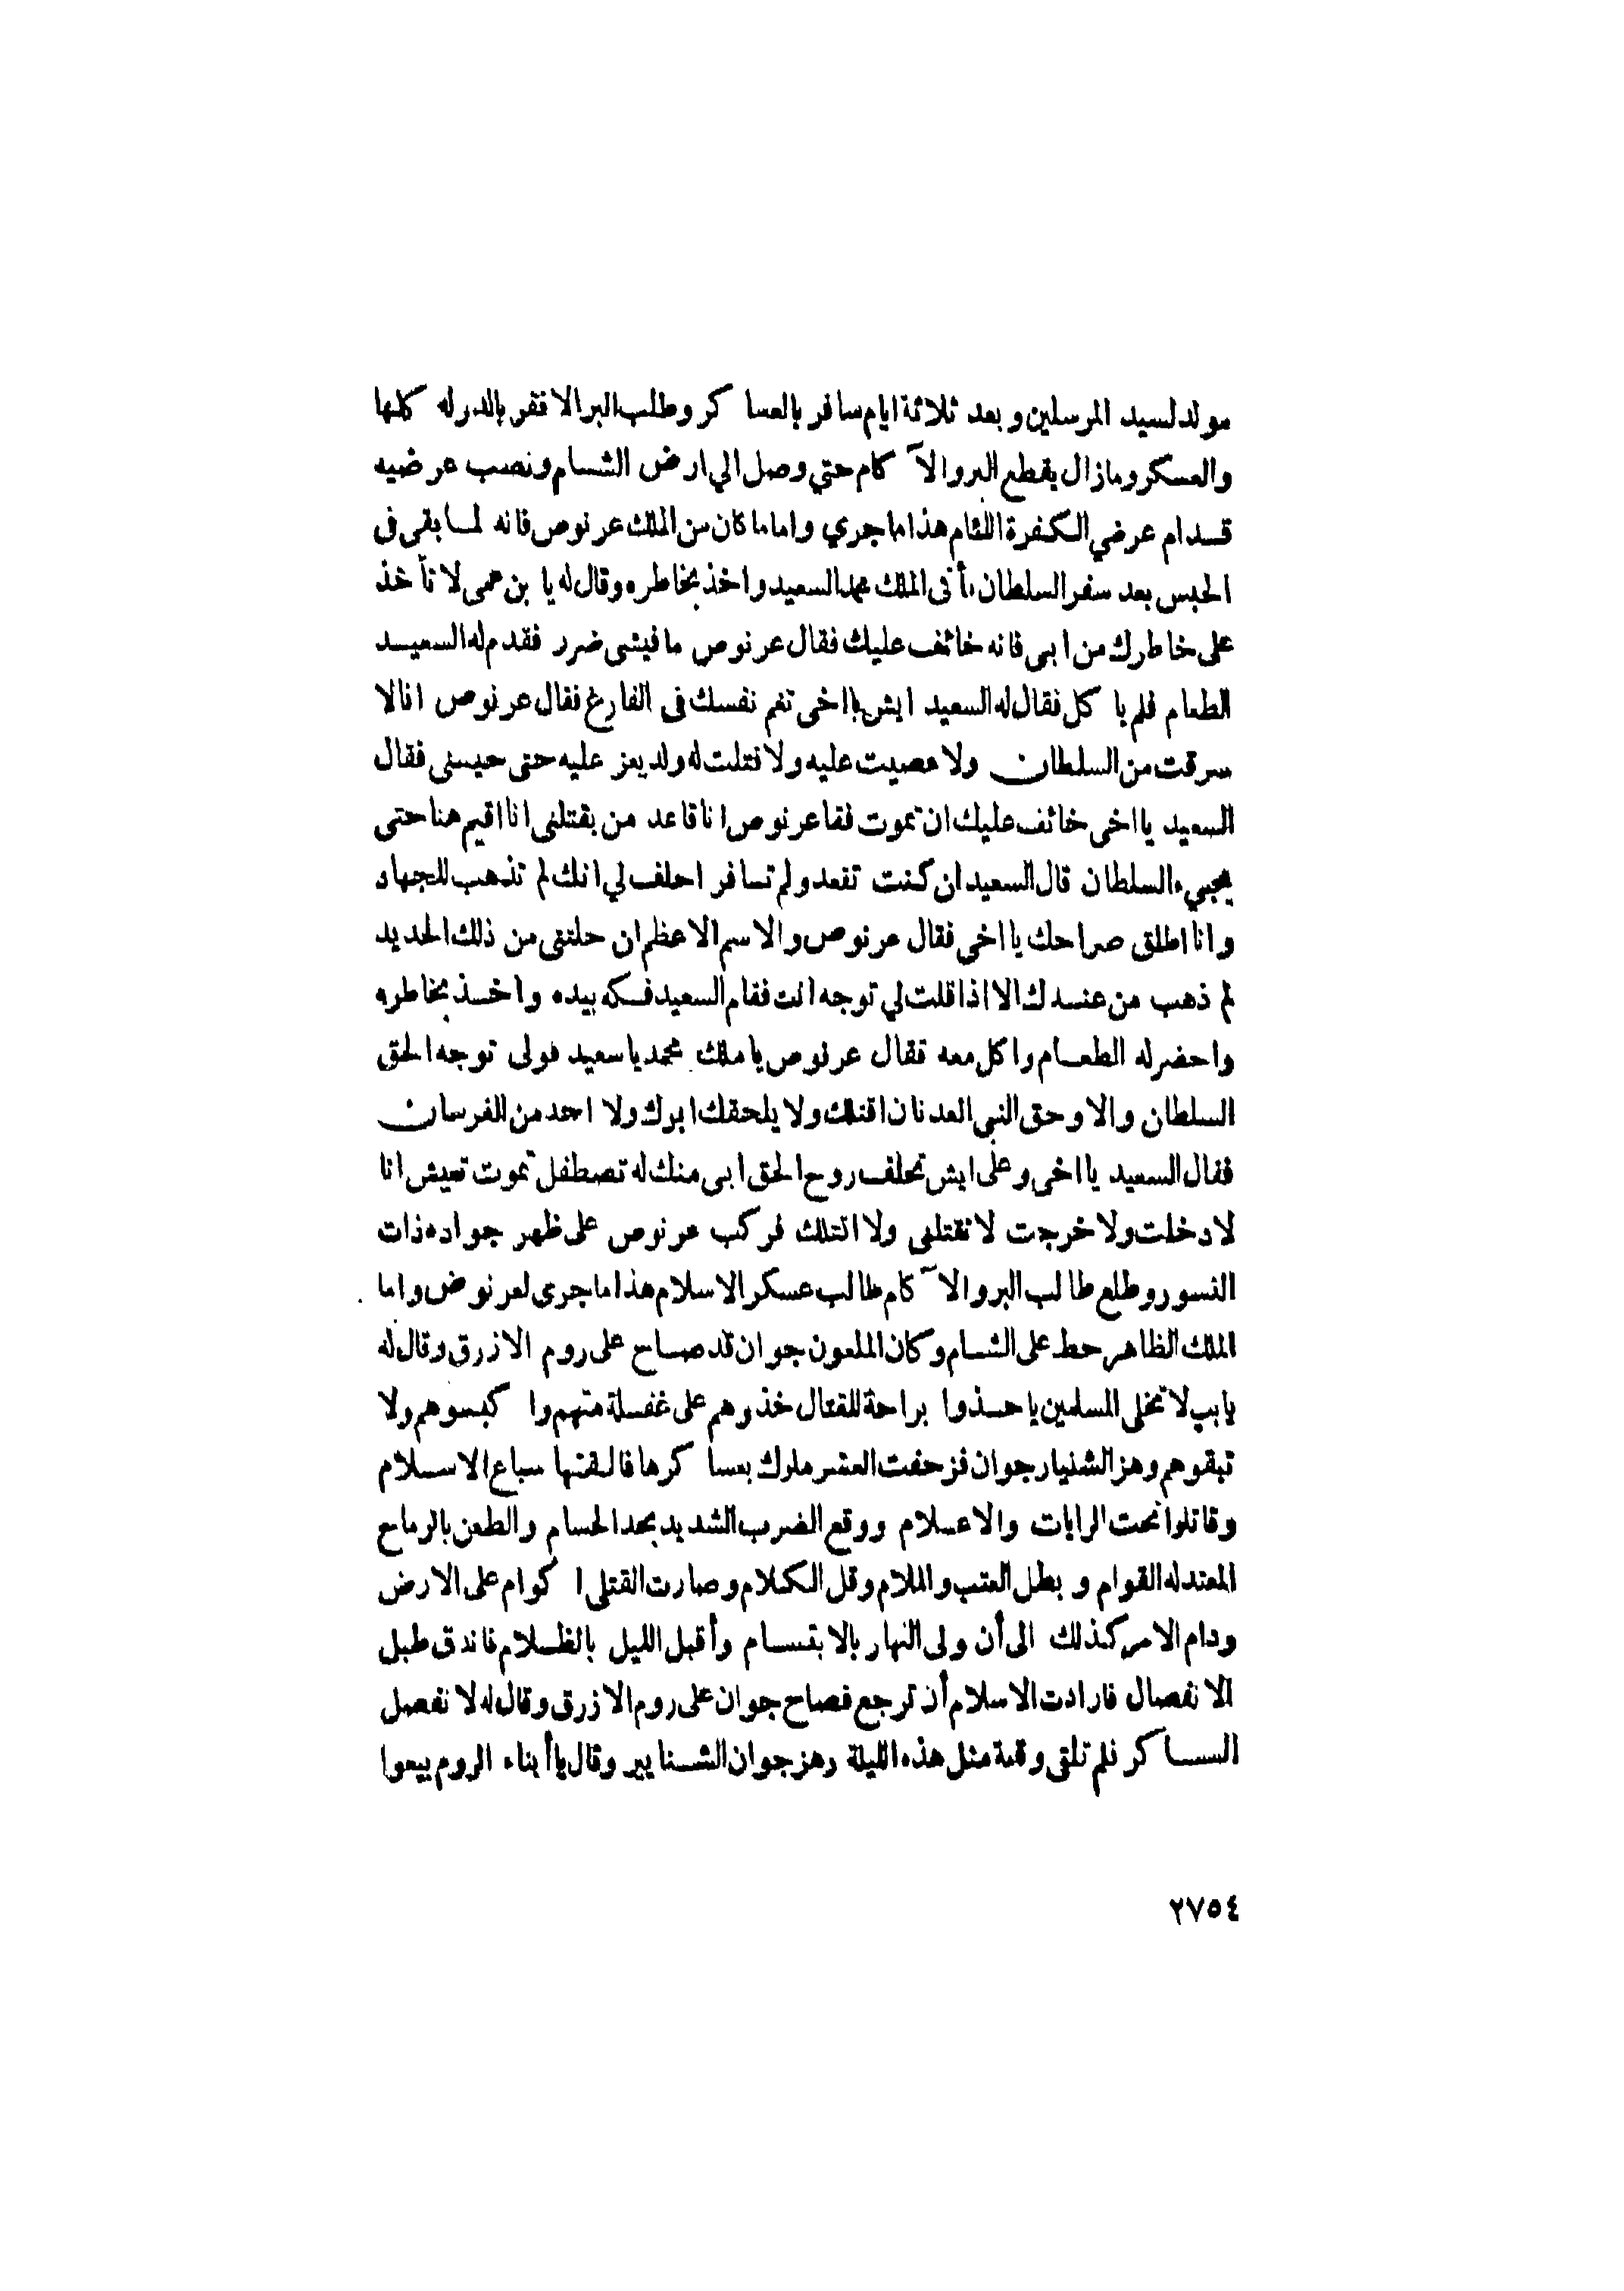 مولد لسيد المرسلين وبعد ثلاثة ايام سافر بالعساكر وطلب البر الاقفر بالدوله كلها
والعسكر ومازال يقطع البر والآكام حتي وصل الي ارض الشام ونصب عرضيه
قدام عرضي الكفرة اللئام هذا ما جري واما ما كان من الملك عرنوص فانه لما بقى فى
الحبس بعد سفر السلطان ءأتى الملك محمد السعيد واخذ بخاطره وقال له يا بن عمى لا تأخذ
على خاطرك من ابى فانه خائف عليك فقال عرنوص ما فيشى ضرر فقدم له السعيد
الطعام فلم يا كل فقال له السعيد ايش يا اخى تغم نفسك فى الفارغ فقال عرنوص انا لا
سرقت من السلطان ولا عصيت عليه ولا قتلت له ولد يعز عليه حتى حبسنى فقال
السعيد يا اخى خائف عليك ان تموت فقا عرنوص انا قاعد من يقتلنى انا اقيم هنا حتى
يجيء السلطان قال السعيد ان كنت تقعد ولم تسافر احلف لي انك لم تذهب للجهاد
وانا اطلق صراحك يا اخى فقال عرنوص والاسم الاعظم ان حلتنى من ذلك الحديد
لم ذهب من عندك الا اذا قلت لي توجه انت فقام السعيد فكه بيده واخذ بخاطره
واحضر له الطعام واكل معه فقال عرنوص يا ملك محمد يا سعيد قولى توجه الحق
السلطان والا وحق النبى العدنان اقتلك ولا يلحقك ابوك ولا احد من الفرسان
فقال السعيد يا اخى وعلى ايش تحلف روح الحق ابى منك له تصطفل تموت تعيش انا
لا دخلت ولا خرجت لا تقتلنى ولا اقتلك فركب عرنوص على ظهر جواده ذات
النسور وطلع طالب البر والآكام طالب عسكر الاسلام هذا ما جرى لعرنوض واما
الملك الظاهر حط على الشام وكان الملعون جوان قد صاح على روم الازرق وقال له
يابب لا تخلى المسلمين ياخذوا براحة للقتال خذوهم على غفلة منهم وا كبسوهم ولا
تبقوهم وهز الشنيار جوان فزحفت العشر ملوك بعساكرها فالتقتها سباع الاسلام
وقاتلوا تحت الرايات والاعلام ووقع الضرب الشديد بحد الحسام والطعن بالرماح
المعتدله القوام و بطل العتب والملام وقل الكلام وصارت القتلى اكوام على الارض
ودام الامر كذلك الى أن ولى النهار بالابتسام وأقبل الليل بالظلام فاندق طبل
الانفصال فارادت الاسلام أن ترجع فصاح جوان على روم الازرق وقال له لا تفصل
العساكر فلم تلتقى وقعة مثل هذه الليلة وهز جوان الشنايير وقال يا أبناء الروم بيعوا
٢٧٥٤